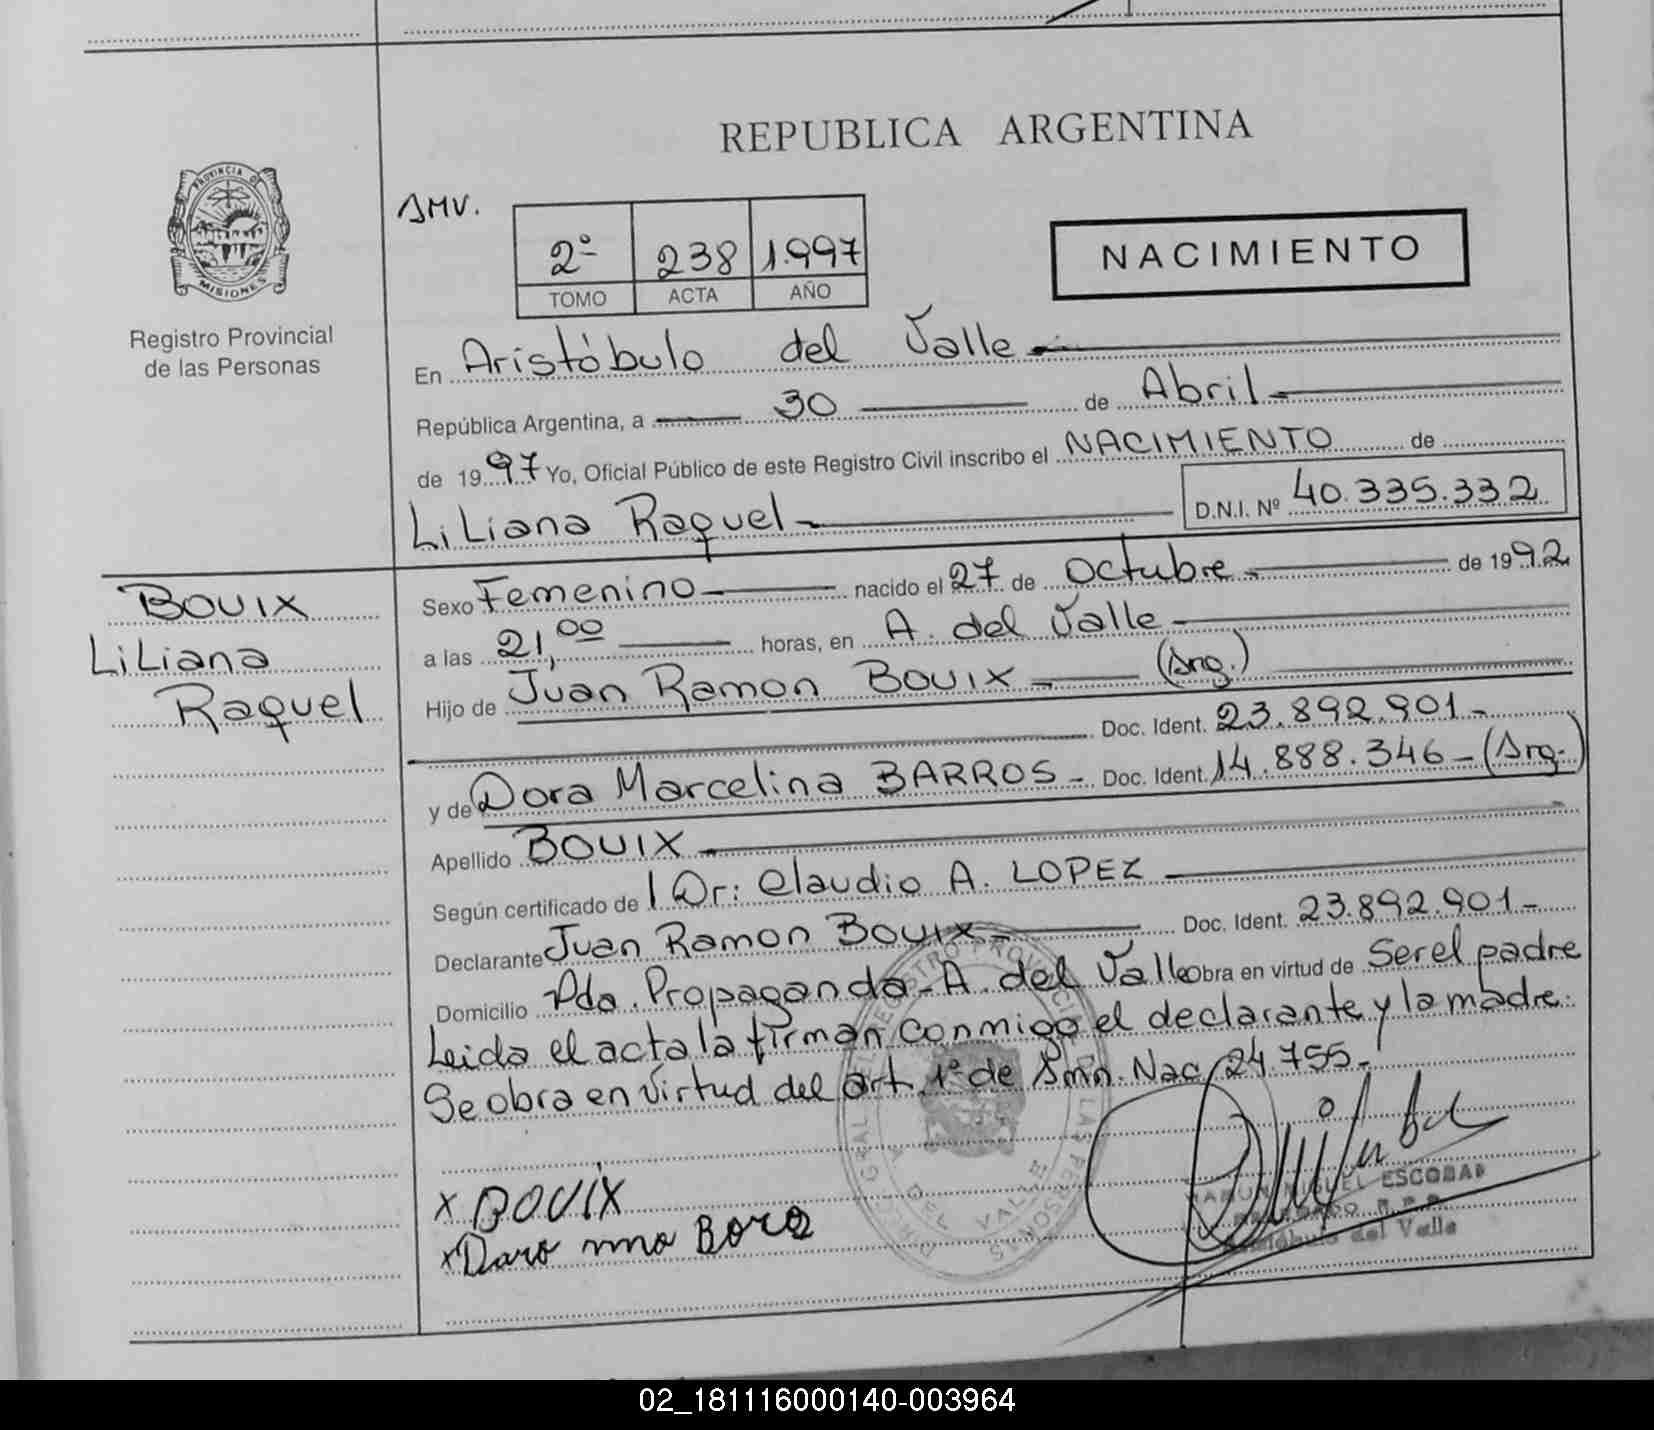 REPUBLICA ARGENTINA
PROVINCIA DE
MISIONES
Registro Provincial
de las Personas
2º 238 1.997
TOMO ACTA AÑO
NACIMIENTO
En Aristóbulo del Valle
República Argentina, a 30 de Abril
de 1997 Yo, Oficial Público de este Registro Civil inscribo el NACIMIENTO de
LiLiana Raquel D.N.I. Nº 40.335.332
BOUIX
LiLiana
Raquel
Sexo Femenino nacido el 27 de Octubre de 1992
a las 21,00 horas, en A. del Valle
Hijo de Juan Ramon BOUIX (Arg.)
Doc. Ident. 23.892.901-
y de Dora Marcelina BARROS- Doc. Ident. 14.888.346-(Arg.)
Apellido BOUIX
Según certificado de Dr: Claudio A. LOPEZ
Declarante Juan Ramon BOUIX Doc. Ident. 23.892.901-
Domicilio Pdo. Propaganda-A. del Valle obra en virtud de Ser el padre
Leida el acta la firman conmigo el declarante y la madre.
Se obra en virtud del art. 1º de Amn. Nac. 24.755.-
x BOUIX
ESCOBAR
del Valle
02_181116000140-003964